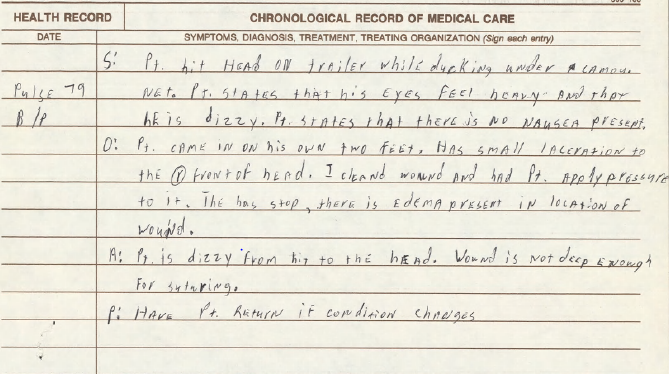 HEALTH RECORD CHRONOLOGICAL RECORD OF MEDICAL CARE
DATE SYMPTOMS, DIAGNOSIS, TREATMENT, TREATING ORGANIZATION (Sign each entry)
S: Pt. hit HEAD ON trailer while ducking under a camou.
Pulse 79 NET. Pt. states that his EYES FEEL heavy and that
B/P HE is dizzy. Pt. states that there is no NAUSEA present.
O: Pt. CAME IN ON his own two FEET. HAS small laceration to
the Ⓡ front of head. I cleand wound and had Pt. apply pressure
to it. The has stop, there is EDEMA present in location of
wound.
A: Pt. is dizzy from hit to the hEAD. Wound is not deep ENough
For suturing.
P: HAVE Pt. Return if condition changes